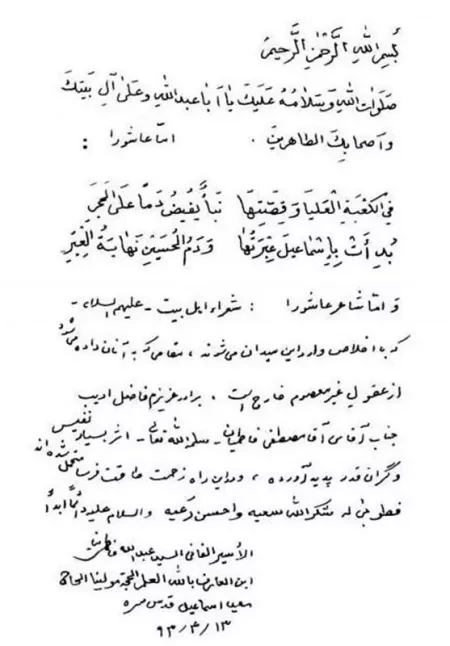 بسم الله الرَّحْمٰنِ الرَّحيمُ
صَلَوٰاتُ اللهِ وَسَلٰامُهُ عَلَيْكَ يٰا اَبٰا عبدِاللهِ وَ عَلىٰ آلِ بَيْتِكَ
و اَصحابِكَ الطاهرينَ . امّا عاشورا :
في الكَعْبَةِ الْعَليٰا وَ قِصَّتِهٰا نَبَأٌ يَفيضُ دَماً عَلَى الحَجَرِ
بُدِأَتْ بِاِسْمٰاعيلَ عِبْرَتُهٰا وَ دَمُ الحُسَيْنِ نِهٰايَةُ الْعِبَرِ
و امّا شاعر عاشورا : شعراء اهل بيت - عليهم السلام -
كه با اخلاص وارد اين ميدان مى‌شوند ، مقامى كه به آنان داده مى‌شود
از عقولِ غير معصوم خارج است . برادر عزيزم فاضل اديب
جناب آقاى آقا مصطفى - سلمه الله تعالى - اثر بسيار نفيس
و گران قدر پديد آورده ، و در اين راه زحمت طاقت فرسا متحمل شده‌اند
فطوبىٰ له شكر الله سعيه و احسن و السلام عليه دائماً ابداً
السيد عبدالله
ابن العارف بالله العلم الحجة مولينا الحاج
اسماعيل قدس سره
٩٣/٣/١٣